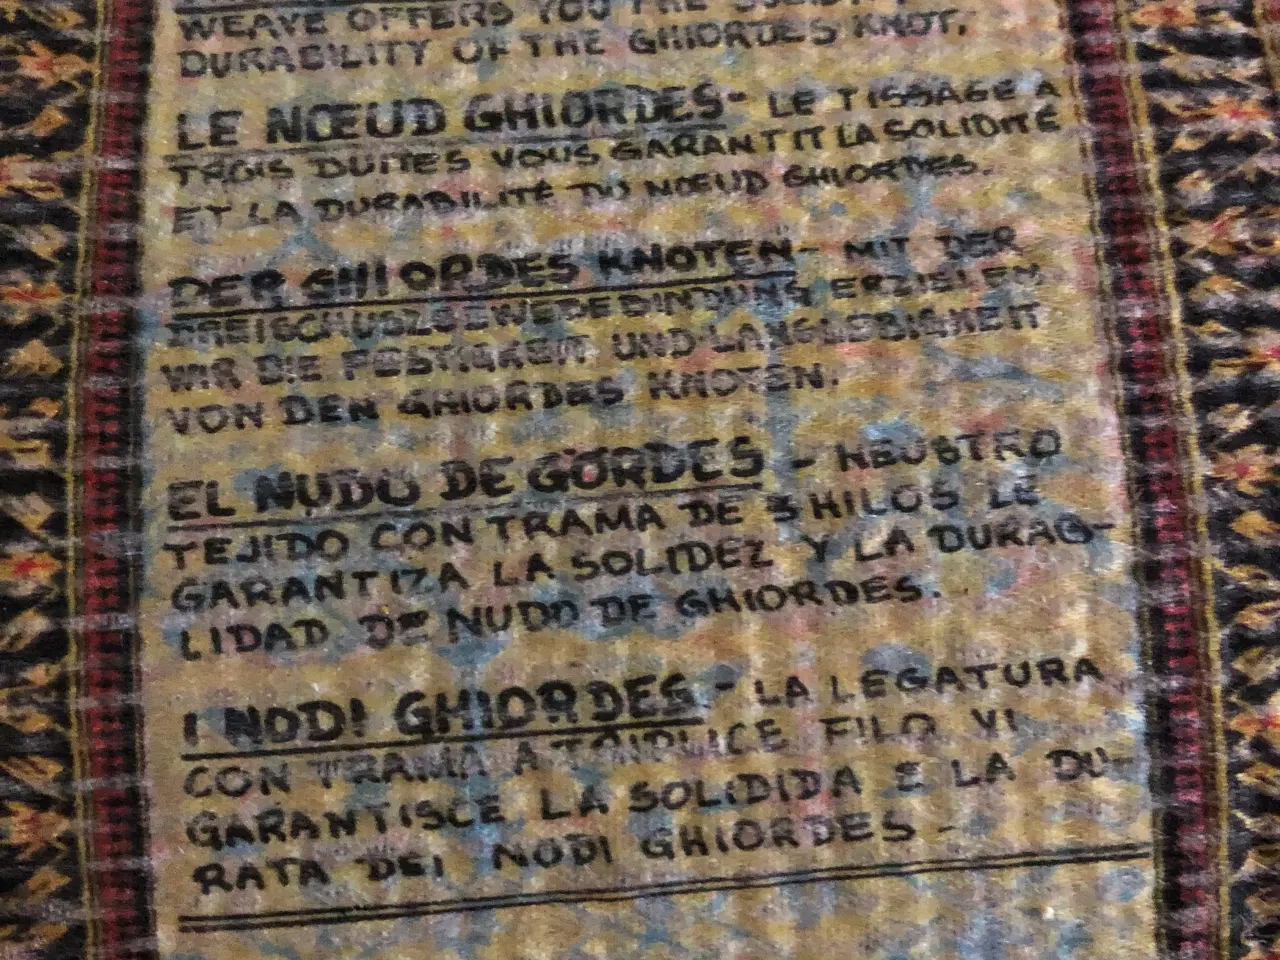 WEAVE OFFERS YOU THE
DURABILITY OF THE GHIORDES KNOT.
LE NŒUD GHIORDES - LE TISSAGE A
TROIS DUITES VOUS GARANTIT LA SOLIDITÉ
ET LA DURABILITÉ DU NŒUD GHIORDES.
DER GHIORDES KNOTEN - MIT DER
ERZIELEN
WIR DIE FESTIGKEIT UND LANGLEBIGKEIT
VON DEN GHIORDES KNOTEN.
EL NUDO DE GORDES - NEUSTRO
TEJIDO CON TRAMA DE 3 HILOS LE
GARANTIZA LA SOLIDEZ Y LA DURAB-
LIDAD DE NUDO DE GHIORDES.
I NODI GHIORDES - LA LEGATURA
CON TRAMA A FILO VI
GARANTISCE LA SOLIDIDA E LA DU-
RATA DEI NODI GHIORDES -